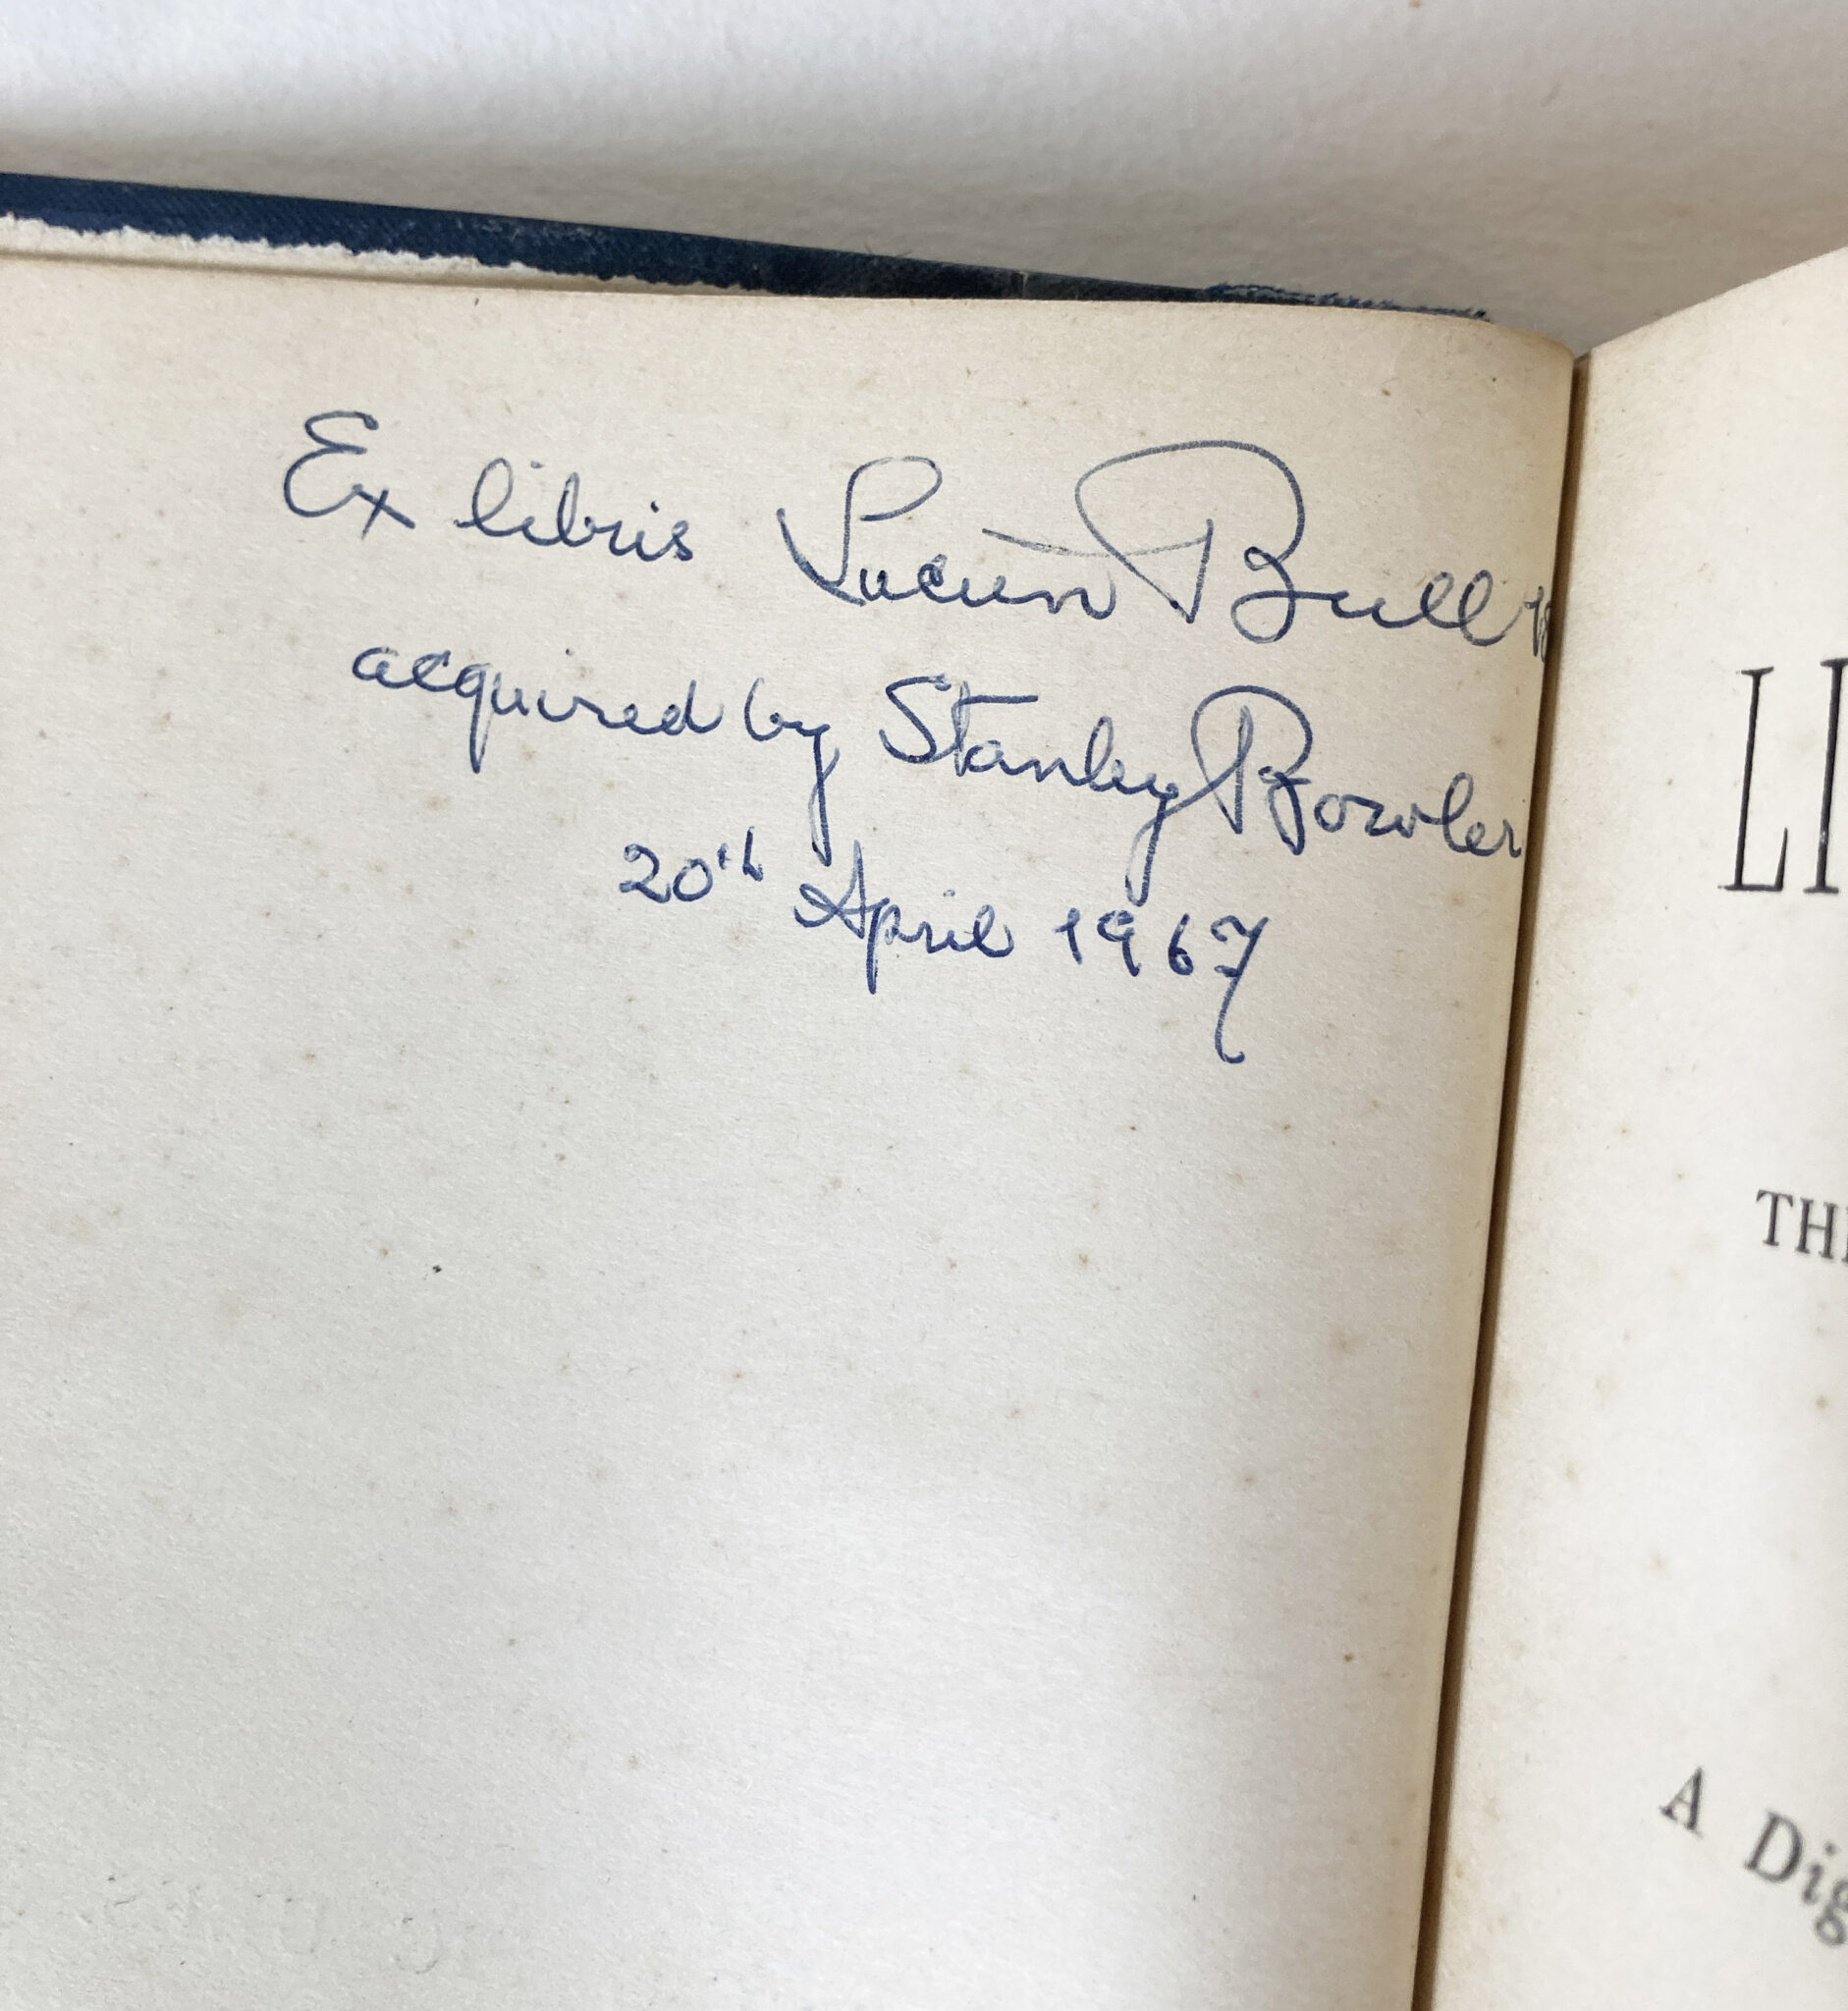 Ex libris Lucien Bull
acquired by Stanley Bowler
20th April 1967
LI
TH
A Dig